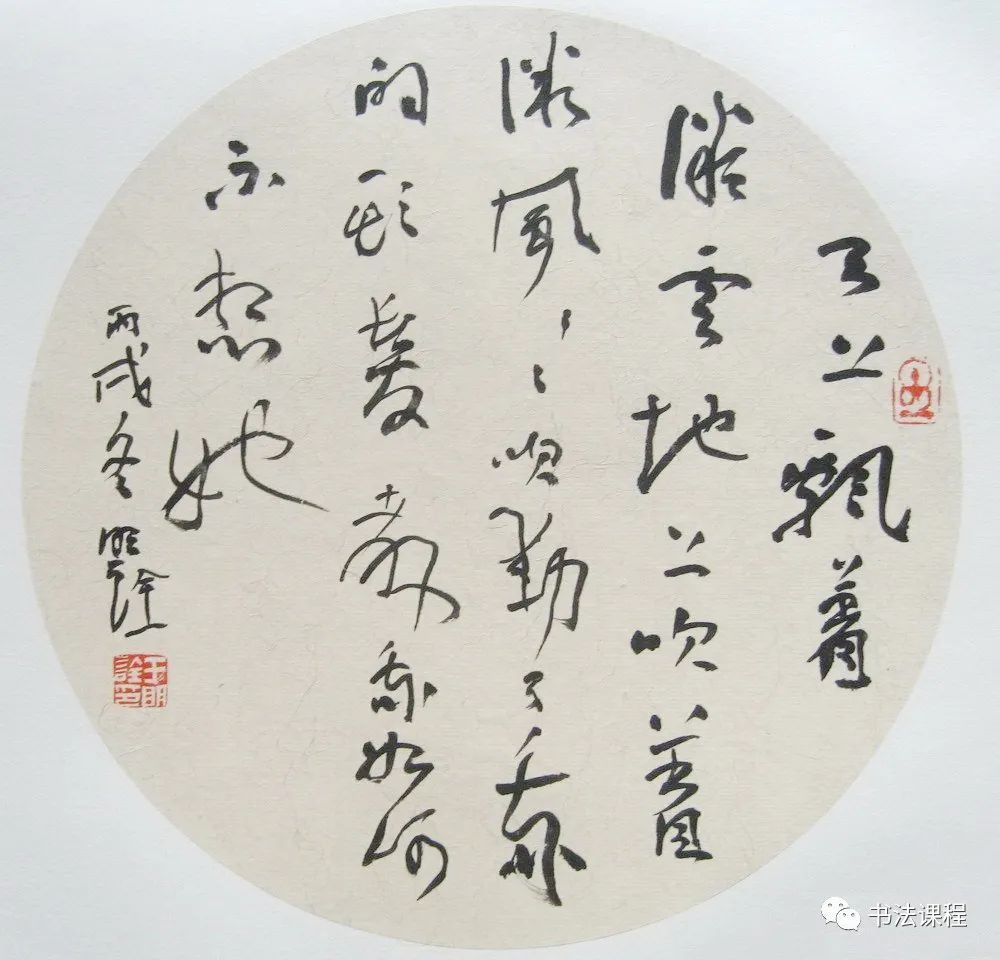 天上飄着
微雲地上吹着
微風〻〻吹動了我
的頭髮教我如何
不想她
丙戌冬 明詮
王明詮印
书法课程